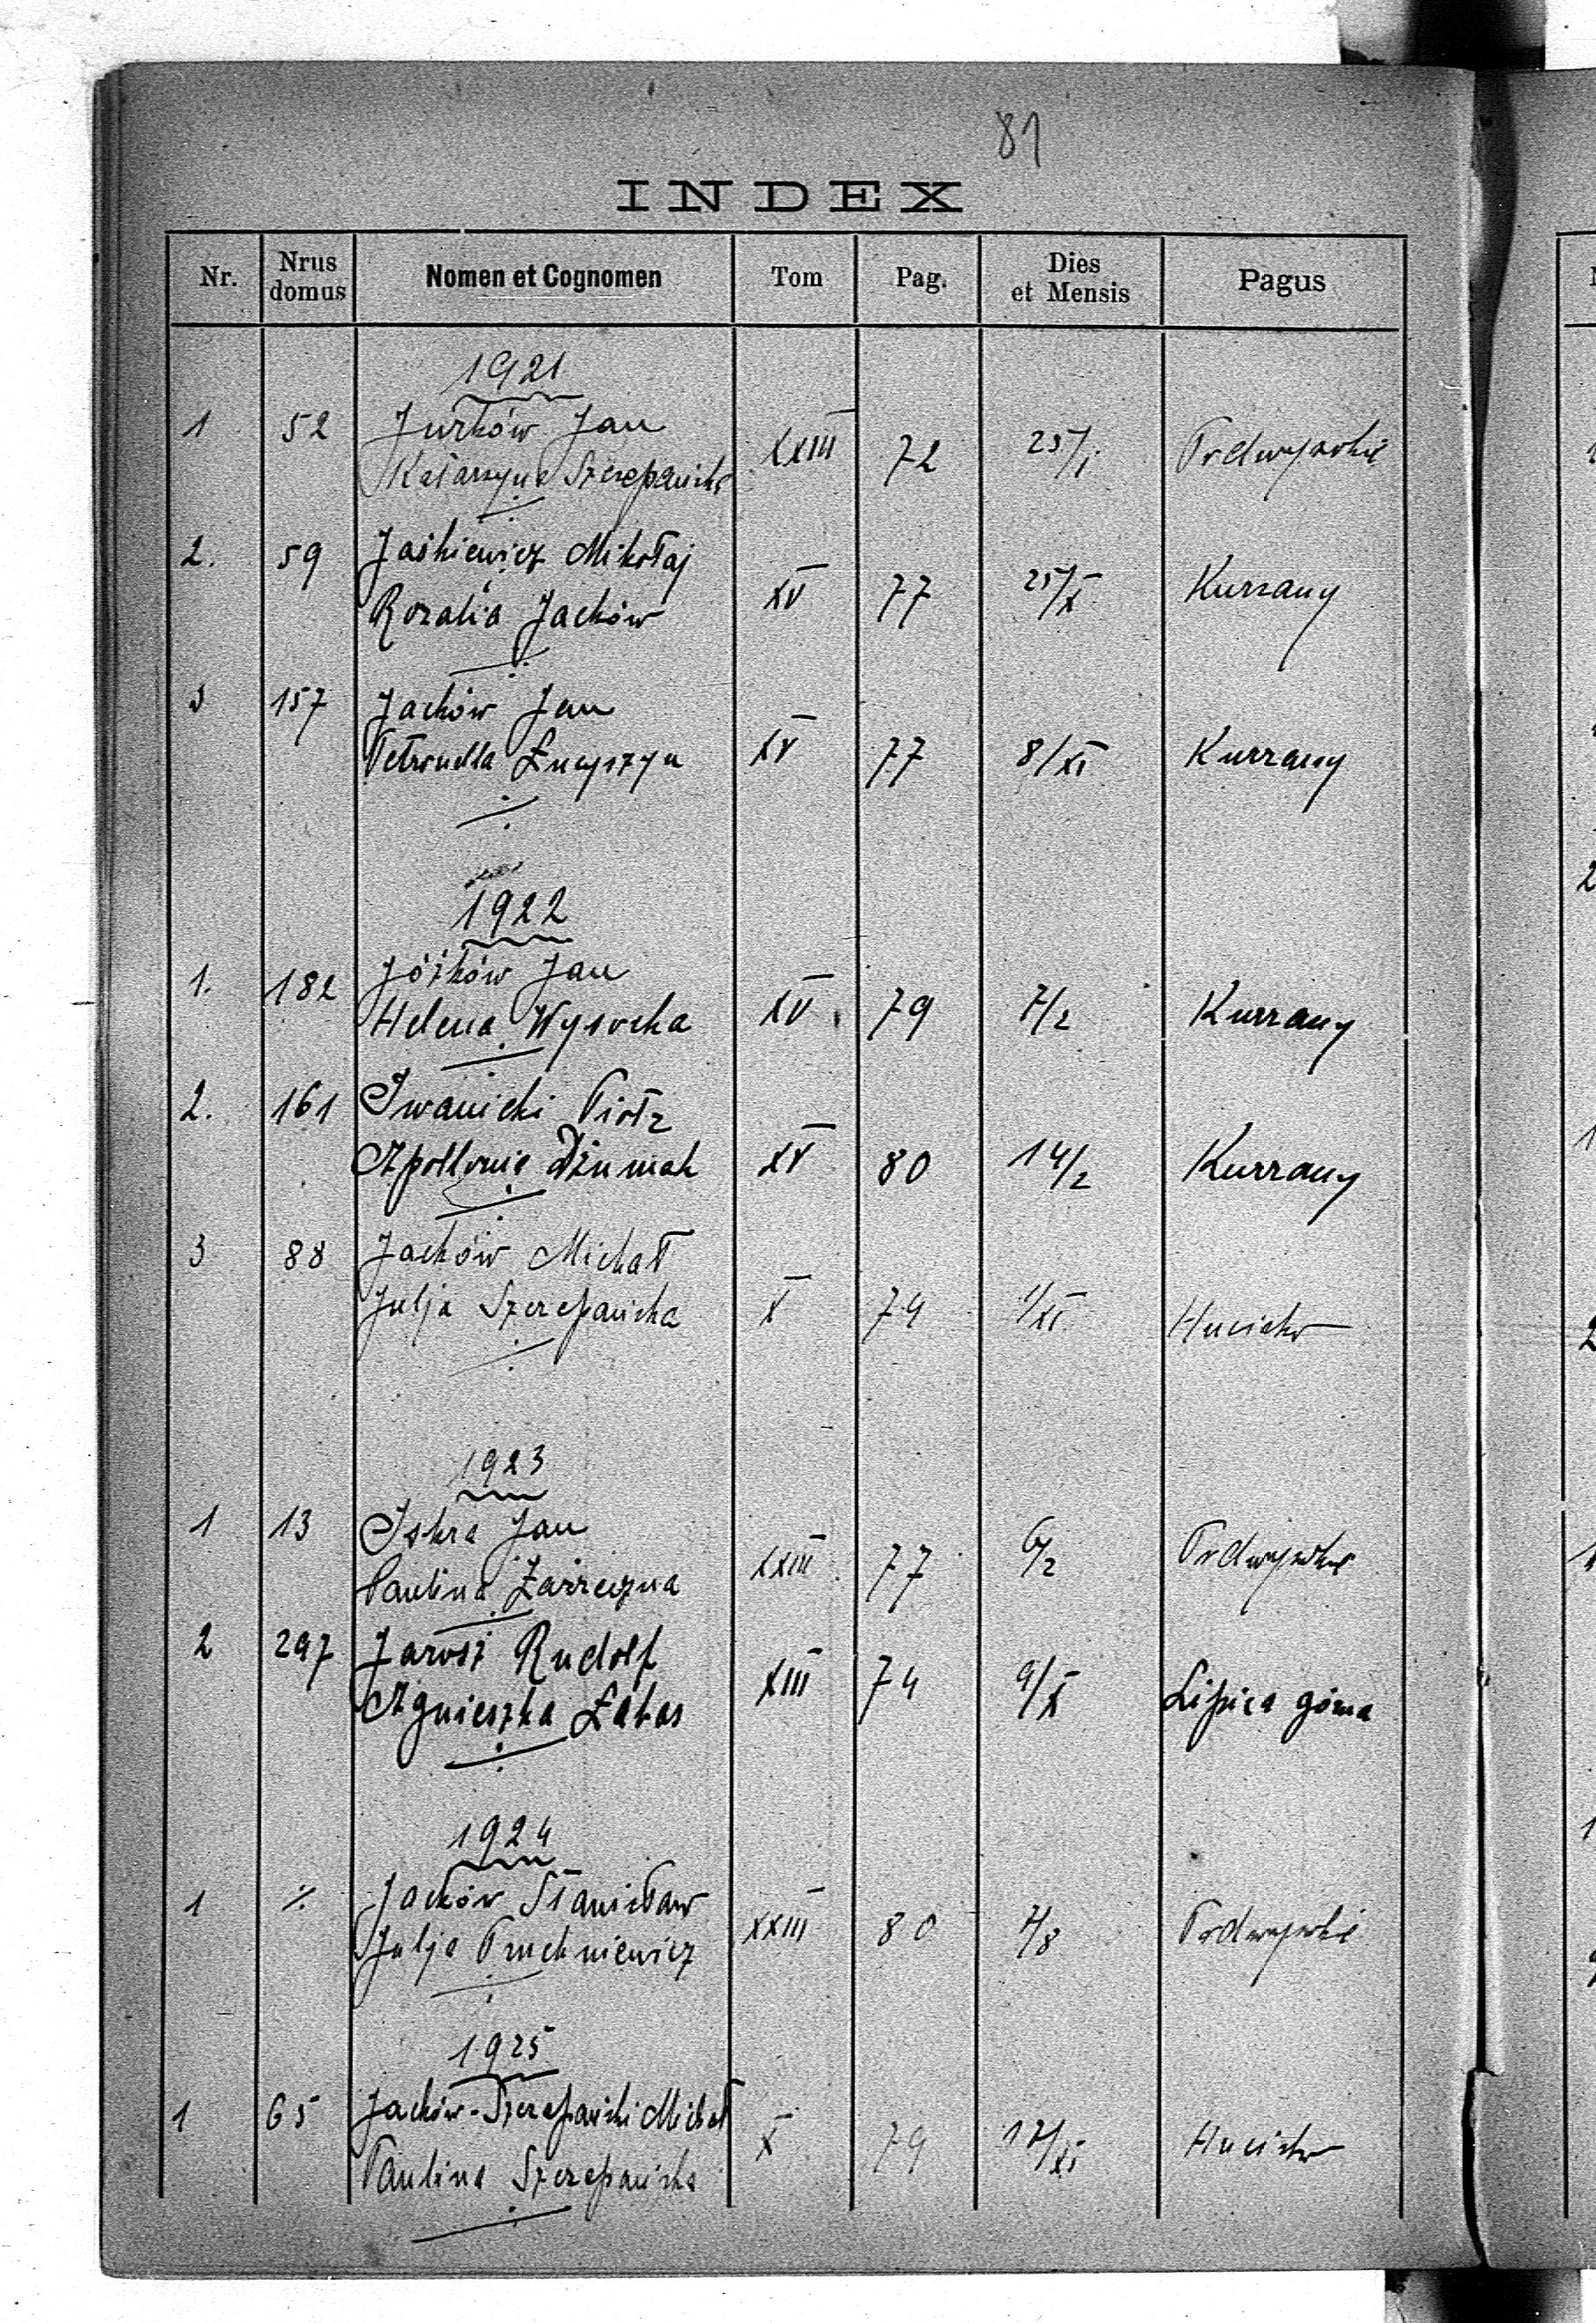 81
INDEX
Nr. Nrus domus Nomen et Cognomen Tom Pag. Dies et Mensis Pagus
1921
1 52 Jurków Jan XXIII 72 25/I Podwysokie
Katarzyna Szczepańska
2. 59 Jaśkiewicz Mikołaj XV 77 25/X Kurzany
Rozalia Jacków
3 157 Jacków Jan XV 77 8/XI Kurzany
Petronella Łucyszyn
1922
1. 182 Jóźków Jan XV 79 7/2 Kurzany
Helena Wysocka
2. 161 Iwanicki Piotr XV 80 14/2 Kurzany
Apollonia Dziumak
3 88 Jacków Michał X 74 1/XI Hucisko
Julja Szczepańska
1923
1 13 Iskra Jan XXIII 77 6/2 Podwysokie
Paulina Zarzeczna
2 297 Jarosz Rudolf XIII 74 9/X Lipica górna
Agnieszka Łabas
1924
1 % Jacków Stanisław XXIII 80 7/8 Podwysokie
Julja Pruchniewicz
1925
1 65 Jacków-Szczepański Michał X 79 17/XI Hucisko
Paulina Szczepańska